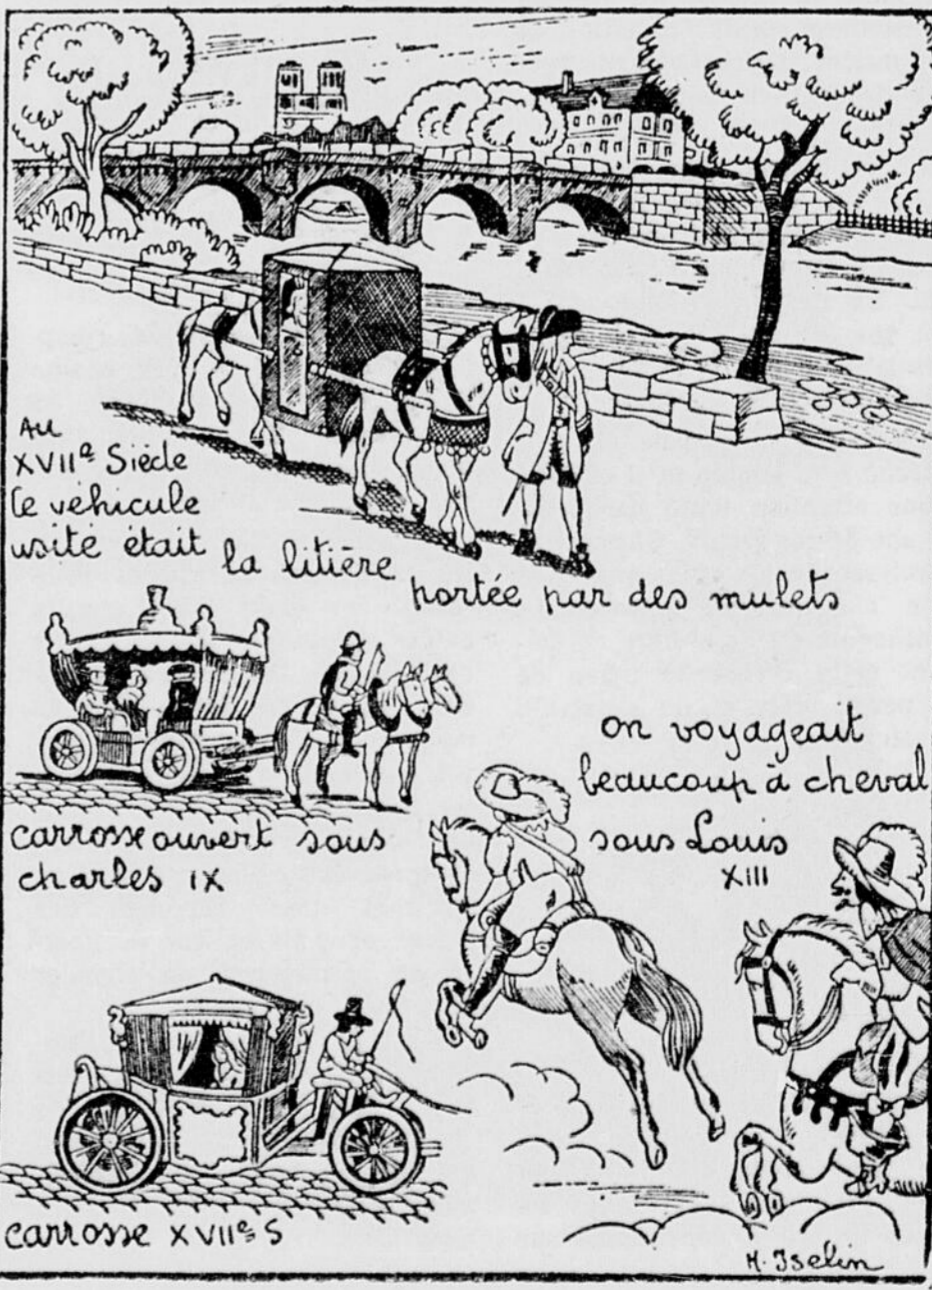 Au
XVIIe Siècle
le véhicule
usité était
la litière
portée par des mulets
carrosse ouvert sous
charles IX
on voyageait
beaucoup à cheval
sous Louis
XIII
carrosse XVIIe S
H. Iselin